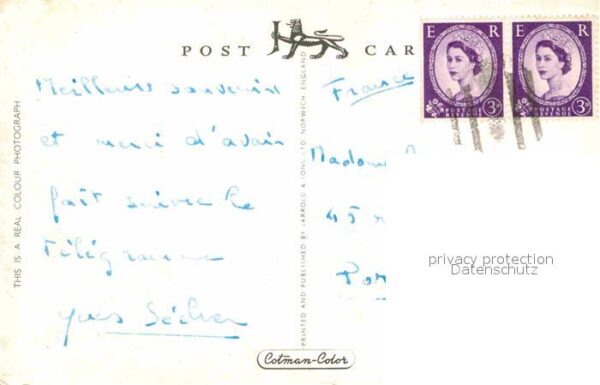 POST CAR
E R
3D
POSTAGE
REVENUE
E R
3D
POSTAGE
REVENUE
THIS IS A REAL COLOUR PHOTOGRAPH
Meilleurs souvenirs
et merci d'avoir
fait suivre le
Télégramme
Yves
PRINTED AND PUBLISHED BY JARROLD & SONS LTD. NORWICH, ENGLAND
France
Madame
45
privacy protection
Datenschutz
Cotman-Color